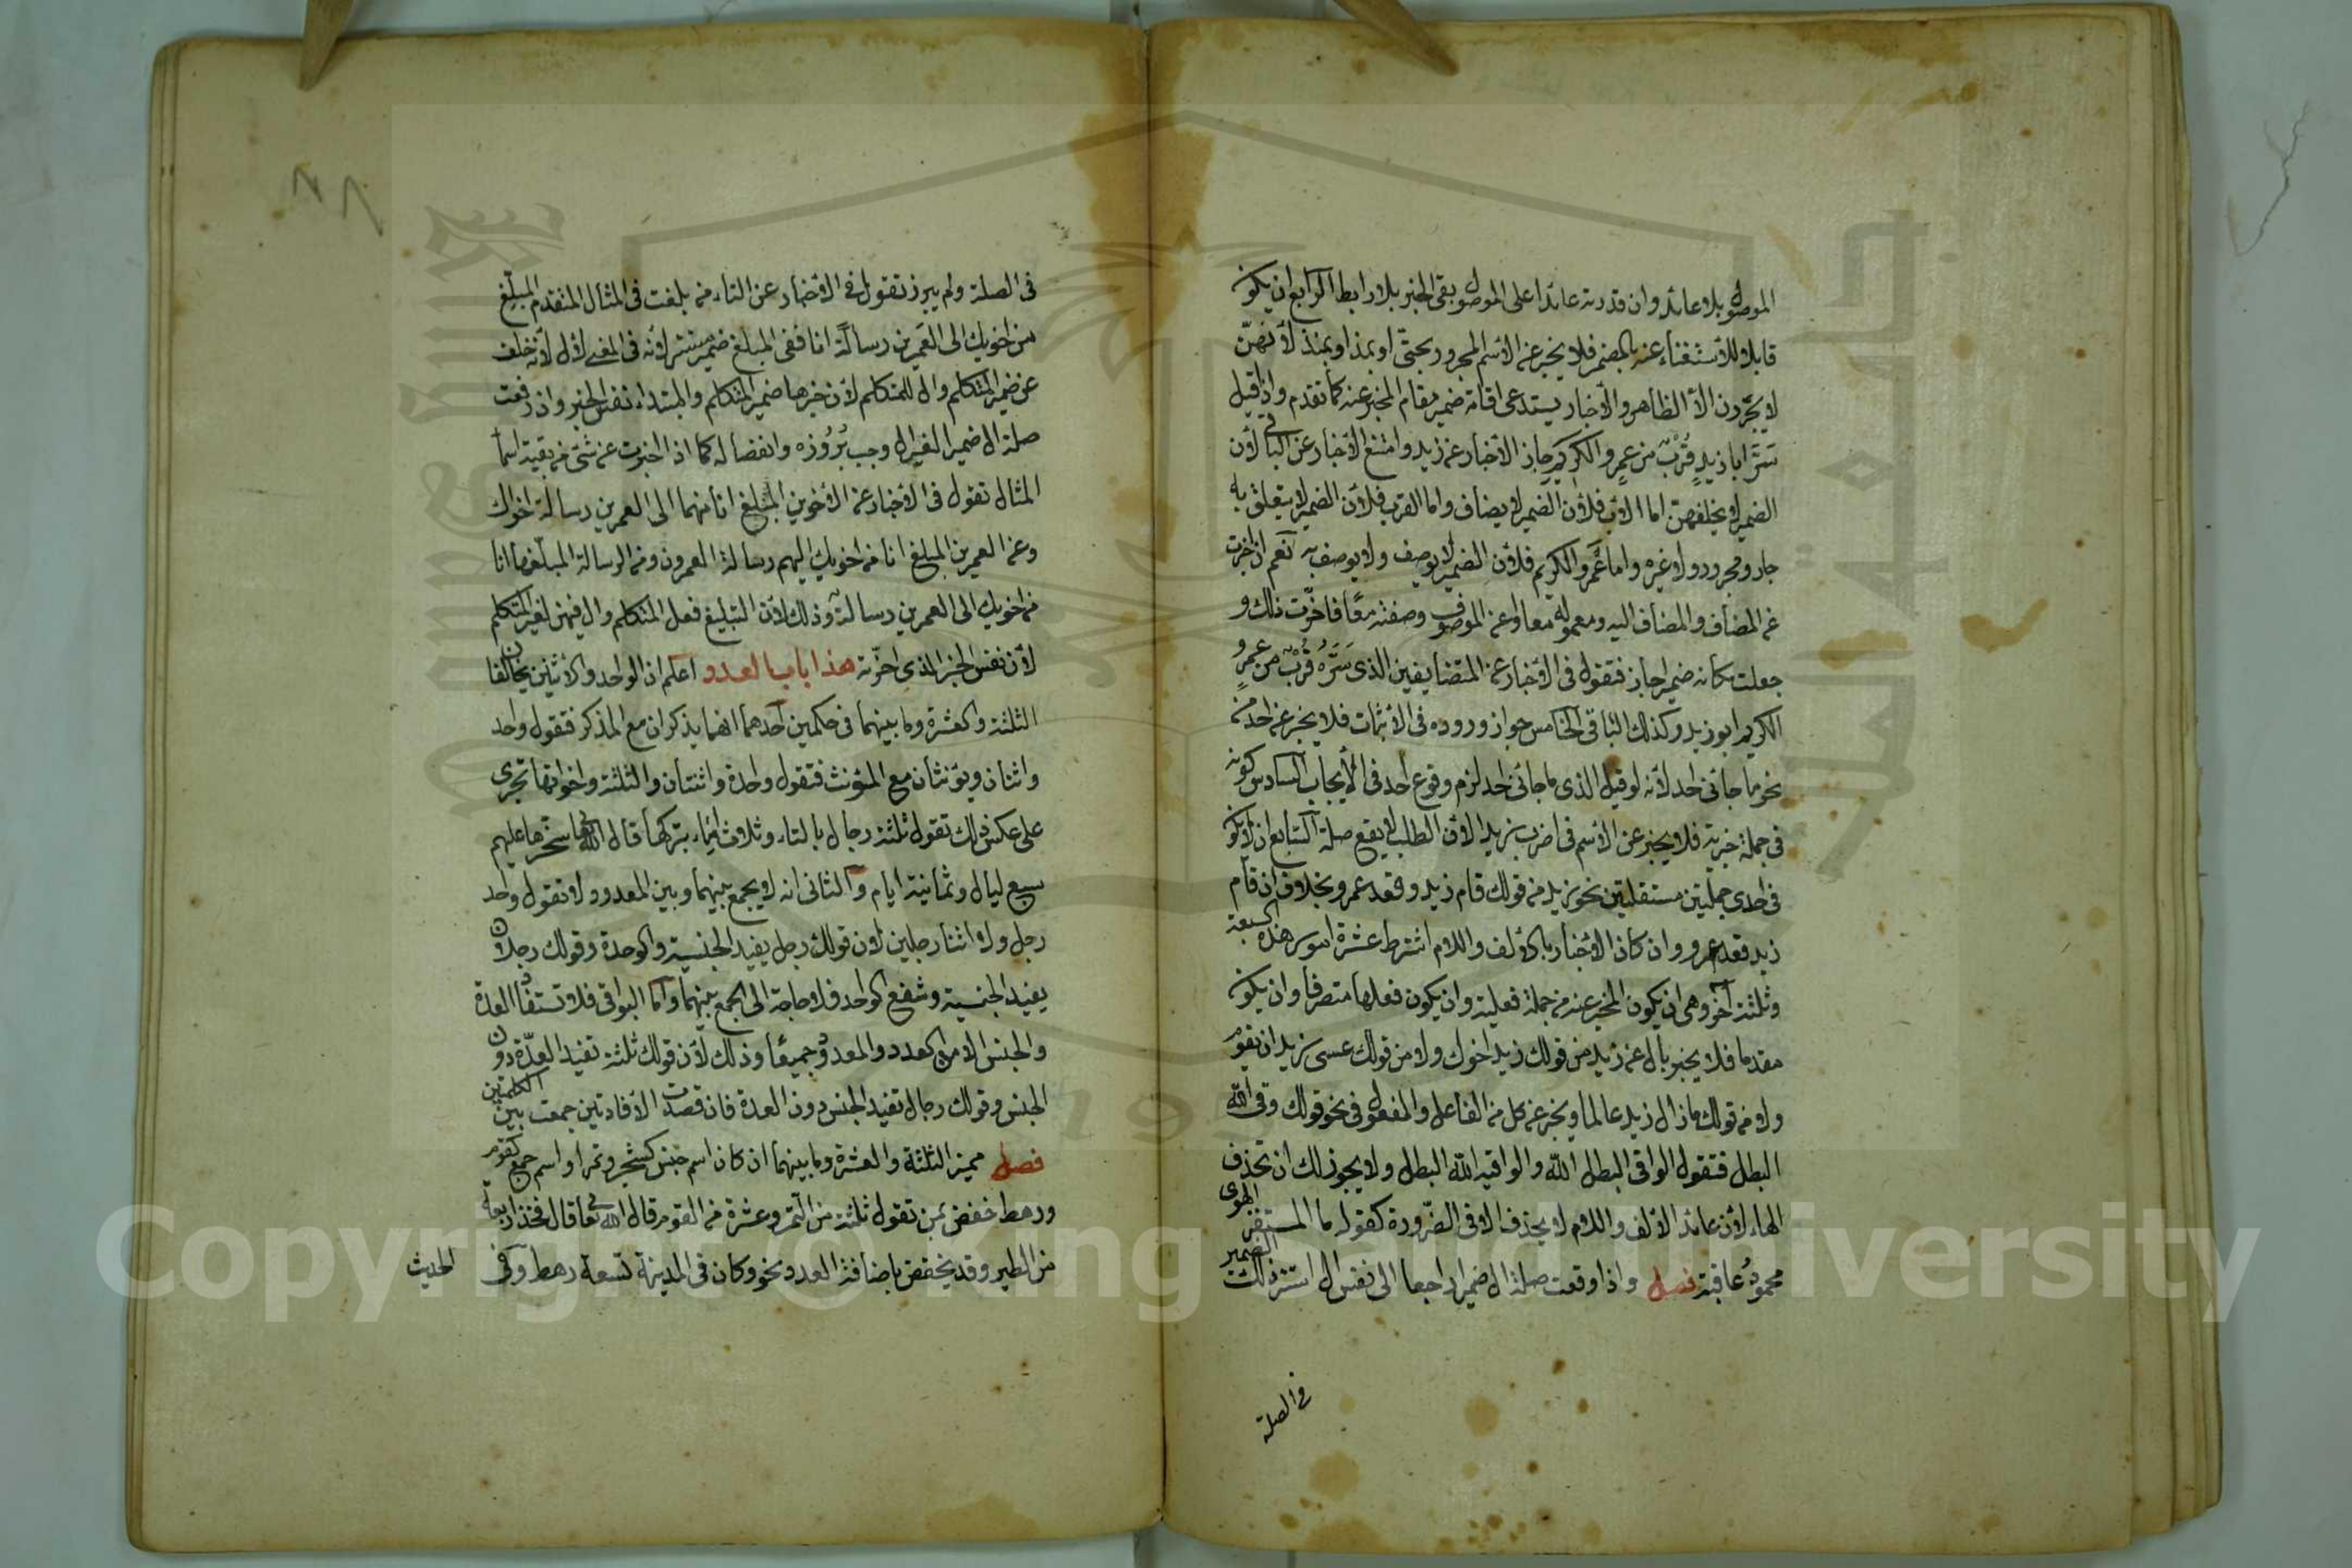 الموصول بلا عائد وان قدرته عائدا على الموصول بقى الخبر بلا رابط الرابع ان يكون
قابلا للأستغناء عنه بالمضمر فلا يخبر عن الأسم المجرور بحتى او بمذ او بمنذ لأنهنّ
لا يجرّون الا الظاهر والأخبار يستدعى اقامة ضمير مقام المخبر عنه كما تقدم واذا قيل
سَرَّ ابا زيدٍ قُرْبٌ من عمرٍو الكريمِ جاز الأخبار عن زيد وامتنع الأخبار عن الباقى لأن
الضمير لا يخلفهنّ اما الأب فلأن الضمير لا يضاف واما القرب فلأن الضمير لا يتعلق به
جار ومجرور ولا غيره واما عَمرو الكريم فلأن الضمير لا يوصف ولا يوصف به نعم ان اخبرت
عن المضاف والمضاف اليه ومعموله معا او عن الموصوف وصفته معًا فاخّرت ذلك و
جعلت مكانه ضميرا جاز فتقول فى الأخبار عن المتضايفين الذى سَرَّهُ قُرْبٌ من عمرٍو
الكريم ابو زيد وكذلك الباقى الخامس جواز وروده فى الأثبات فلا يخبر عن احد من
نحو ما جائى احد لأنه لو قيل الذى ما جائى احد لزم وقوع احد فى الأيجاب السادس كونه
فى جملة خبرية فلا يخبر عن الأسم فى اضرب زيدا لأن الطلب لا يقع صلة السابع ان لا يكون
فى احدى جملتين مستقلتين نحو زيد من قولك قام زيد وقعد عمرو بخلاف ان قام
زيد قعد عمرو وان كان الأخبار بالألف واللام اشترط عشرة امور هذه السبعة
وثلثة اخر وهى ان يكون المخبر عنه من جملة فعلية وان يكون فعلها متصرفا وان يكون
مقدما فلا يخبر بال عن زيد من قولك زيد اخوك ولا من قولك عسى زيد ان تقوم
ولا من قولك ما زال زيد عالما ويخبر عن كل من الفاعل والمفعول فى نحو قولك وقى الله
البطل فتقول الواقى البطل الله والواقيه الله البطل ولا يجوز لك ان تحذف
الهاء لأن عائد الألف واللام لا يحذف الا فى الضّرورة كقوله ما المستفز الهوى
محمودُ عاقبة فصل واذا وقعت صلة ال ضميرا راجعا الى نفس ال استتر ذلك الضمير
فى الصلة
فى الصلة ولم يبرز تقول فى الأخبار عن التاء من بلغت فى المثال المتقدم المبلّغ
من اخويك الى العَمرين رسالةً انا ففى المبلغ ضمير مستتر لأنه فى المعنى لأل لأنه خلف
عن ضمير المتكلم وال للمتكلم لأن خبرها ضمير المتكلم والمبتداء نفس الخبر وان رفعت
صلة ال ضميرا لغير ال وجب بُرُوزه وانفصاله كما اذا اخبرت عن شئ من بقية اسماء
المثال تقول فى الأخبار عن الأخوين المبلغ انا منهما الى العمرين رسالة اخواك
وعن العمرين المبلغ انا من اخويك اليهم رسالة العمرون وعن الرسالة المبلّغها انا
من اخويك الى العمرين رسالة وذلك لأن التبليغ فعل المتكلم وال فيهن لغير المتكلم
لأن نفس الخبر الذى اخّرته هذا باب العدد اعلم ان الواحد والاثنين يخالفان
الثلثة والعشرة وما بينهما فى حكمين احدهما انهما يذكران مع المذكر فتقول واحد
واثنان ويؤنثان مع المؤنث فتقول واحدة واثنتان والثلثة واخواتها تجرى
على عكس ذلك تقول ثلثة رجال بالتاء وثلاث اماء بتركها قال الله تعا سخرها عليهم
سبع ليال وثمانية ايام والثانى انه لا يجمع بينهما وبين المعدود لا تقول واحد
رجل ولا اثنا رجلين لأن قولك رجل يفيد الجنسية والوحدة وقولك رجلان
يفيد الجنسية وشفع الواحد فلا حاجة الى الجمع بينهما واما البواقى فلا تستفاد العدة
والجنس الا من العدد والمعدود جميعًا وذلك لأن قولك ثلثة تفيد العدّة دون
الجنس وقولك رجال تفيد الجنس دون العدة فان قصدت الأفادتين جمعت بين الكلمتين
فصل مميز الثلثة والعشرة وما بينهما ان كان اسم جنس كشجر وتمر او اسم جمع كقوم
ورهط خفض بمن تقول ثلثة من التمر وعشرة من القوم قال الله تعا قال فخذ اربعة
من الطير وقد يخفض باضافة العدد نحو وكان فى المدينة تسعة رهط وفى الحديث